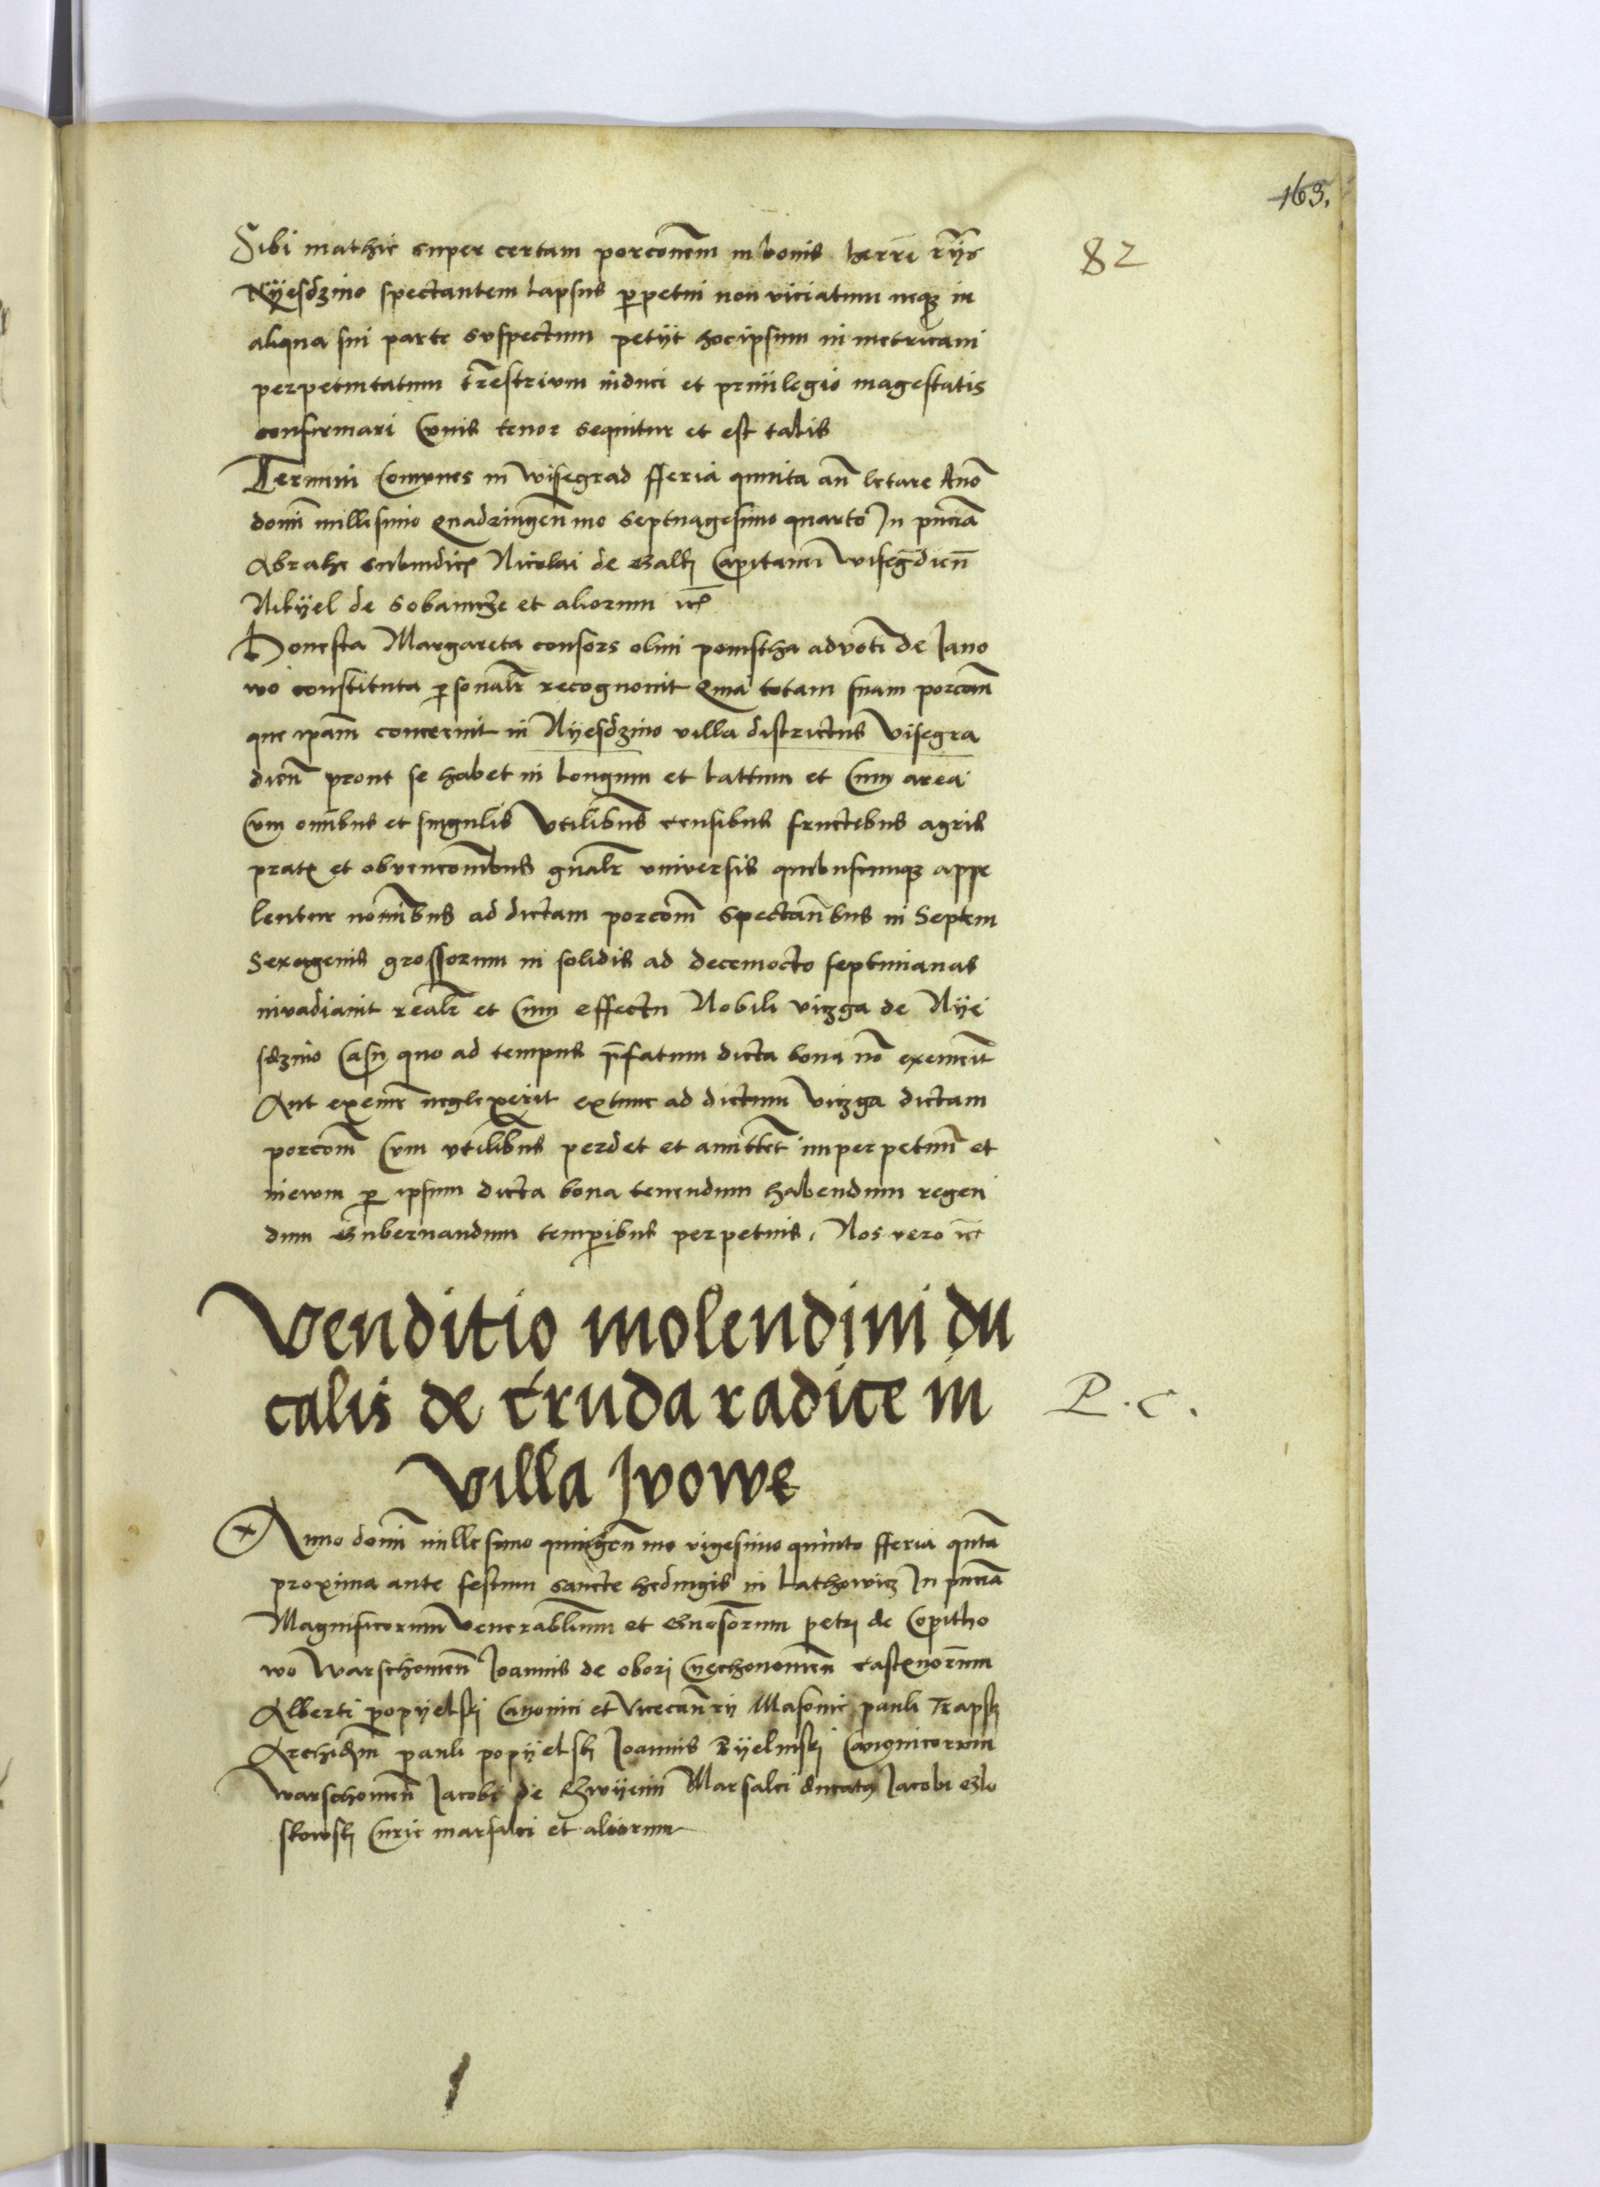 163.
82
Sibi mathie super certam porcōnem in bonis herēn
Nyesdzino spectantem Lapsus ꝑpetui non viciatum neqꝫ in
aliqua sui parte suspectum petijt hocipsum in metricam
perpetuitatum tr̄estrium induci et priuilegio magestatis
confirmari Cuius tenor sequitur et est talis
Termini Comunes in Wisegrad fferia quinta an̄ letare Anō
domī millesimo Quadringen̄mo septuagesimo quarto In pn̄cia
Abrahe subiudicꝭ Nicolai de Capitanei Wisegrādien̄
de et aliorum
Honesta Margareta consors olim advōti de Jano
wo constituta ꝑsonalr̄ recognouit Quia totam suam porcōn̄
que ipām concernit in Nyesdzino villa districtus Visegra
dien̄ prout se habet in Longum et Lattum et Cum area
Cum om̄ibus et singulis Vtilibus censibus fructebus agris
pratꝭ et obvencōibus gn̄alr̄ vniversis quibuscumqꝫ appe
lentur noīibus ad dictam porcōm̄ spectan̄bus in Septem
Sexagenis grossorum in solidis ad decemocto septimanas
invadiauit realr̄ et Cum effectu Nobili vizga de Nye
sdzino Casu quo ad tempus p̄fatum dicta bona nō exemerīt
Aut exime neglexerit extunc ad dictum Vizga dictam
porcōm̄ Cum vtilibus perdet et amittet imperpetuū et
in ewm ꝑ ipsum dicta bona tenendum habendum regen
dum Gubernandum temꝑibus perpetuis. Nos vero
Venditio molendini du
calis de cruda radice in
P. C.
villa Jvowe
Anno domī millesimo quingen̄mo vigesimo quinto fferia qn̄ta
proxima ante festum sancte hedvigis in In pn̄cia
Magnificorum Venerabilium et Gnōsorum petri de Copitho
wo Warschouien̄ Joannis de obori Cyechonouien̄
Alberti popyelskj Canonici et Vicecan̄rij Masouie pauli
Archid̄ni pauli popyelskj Joannis Byelinskj Canonicorum
warschouien̄ Jacobi de Marsalci ducatꝰ Jacobi Glo
skowskj Curie marsalci et aliorum